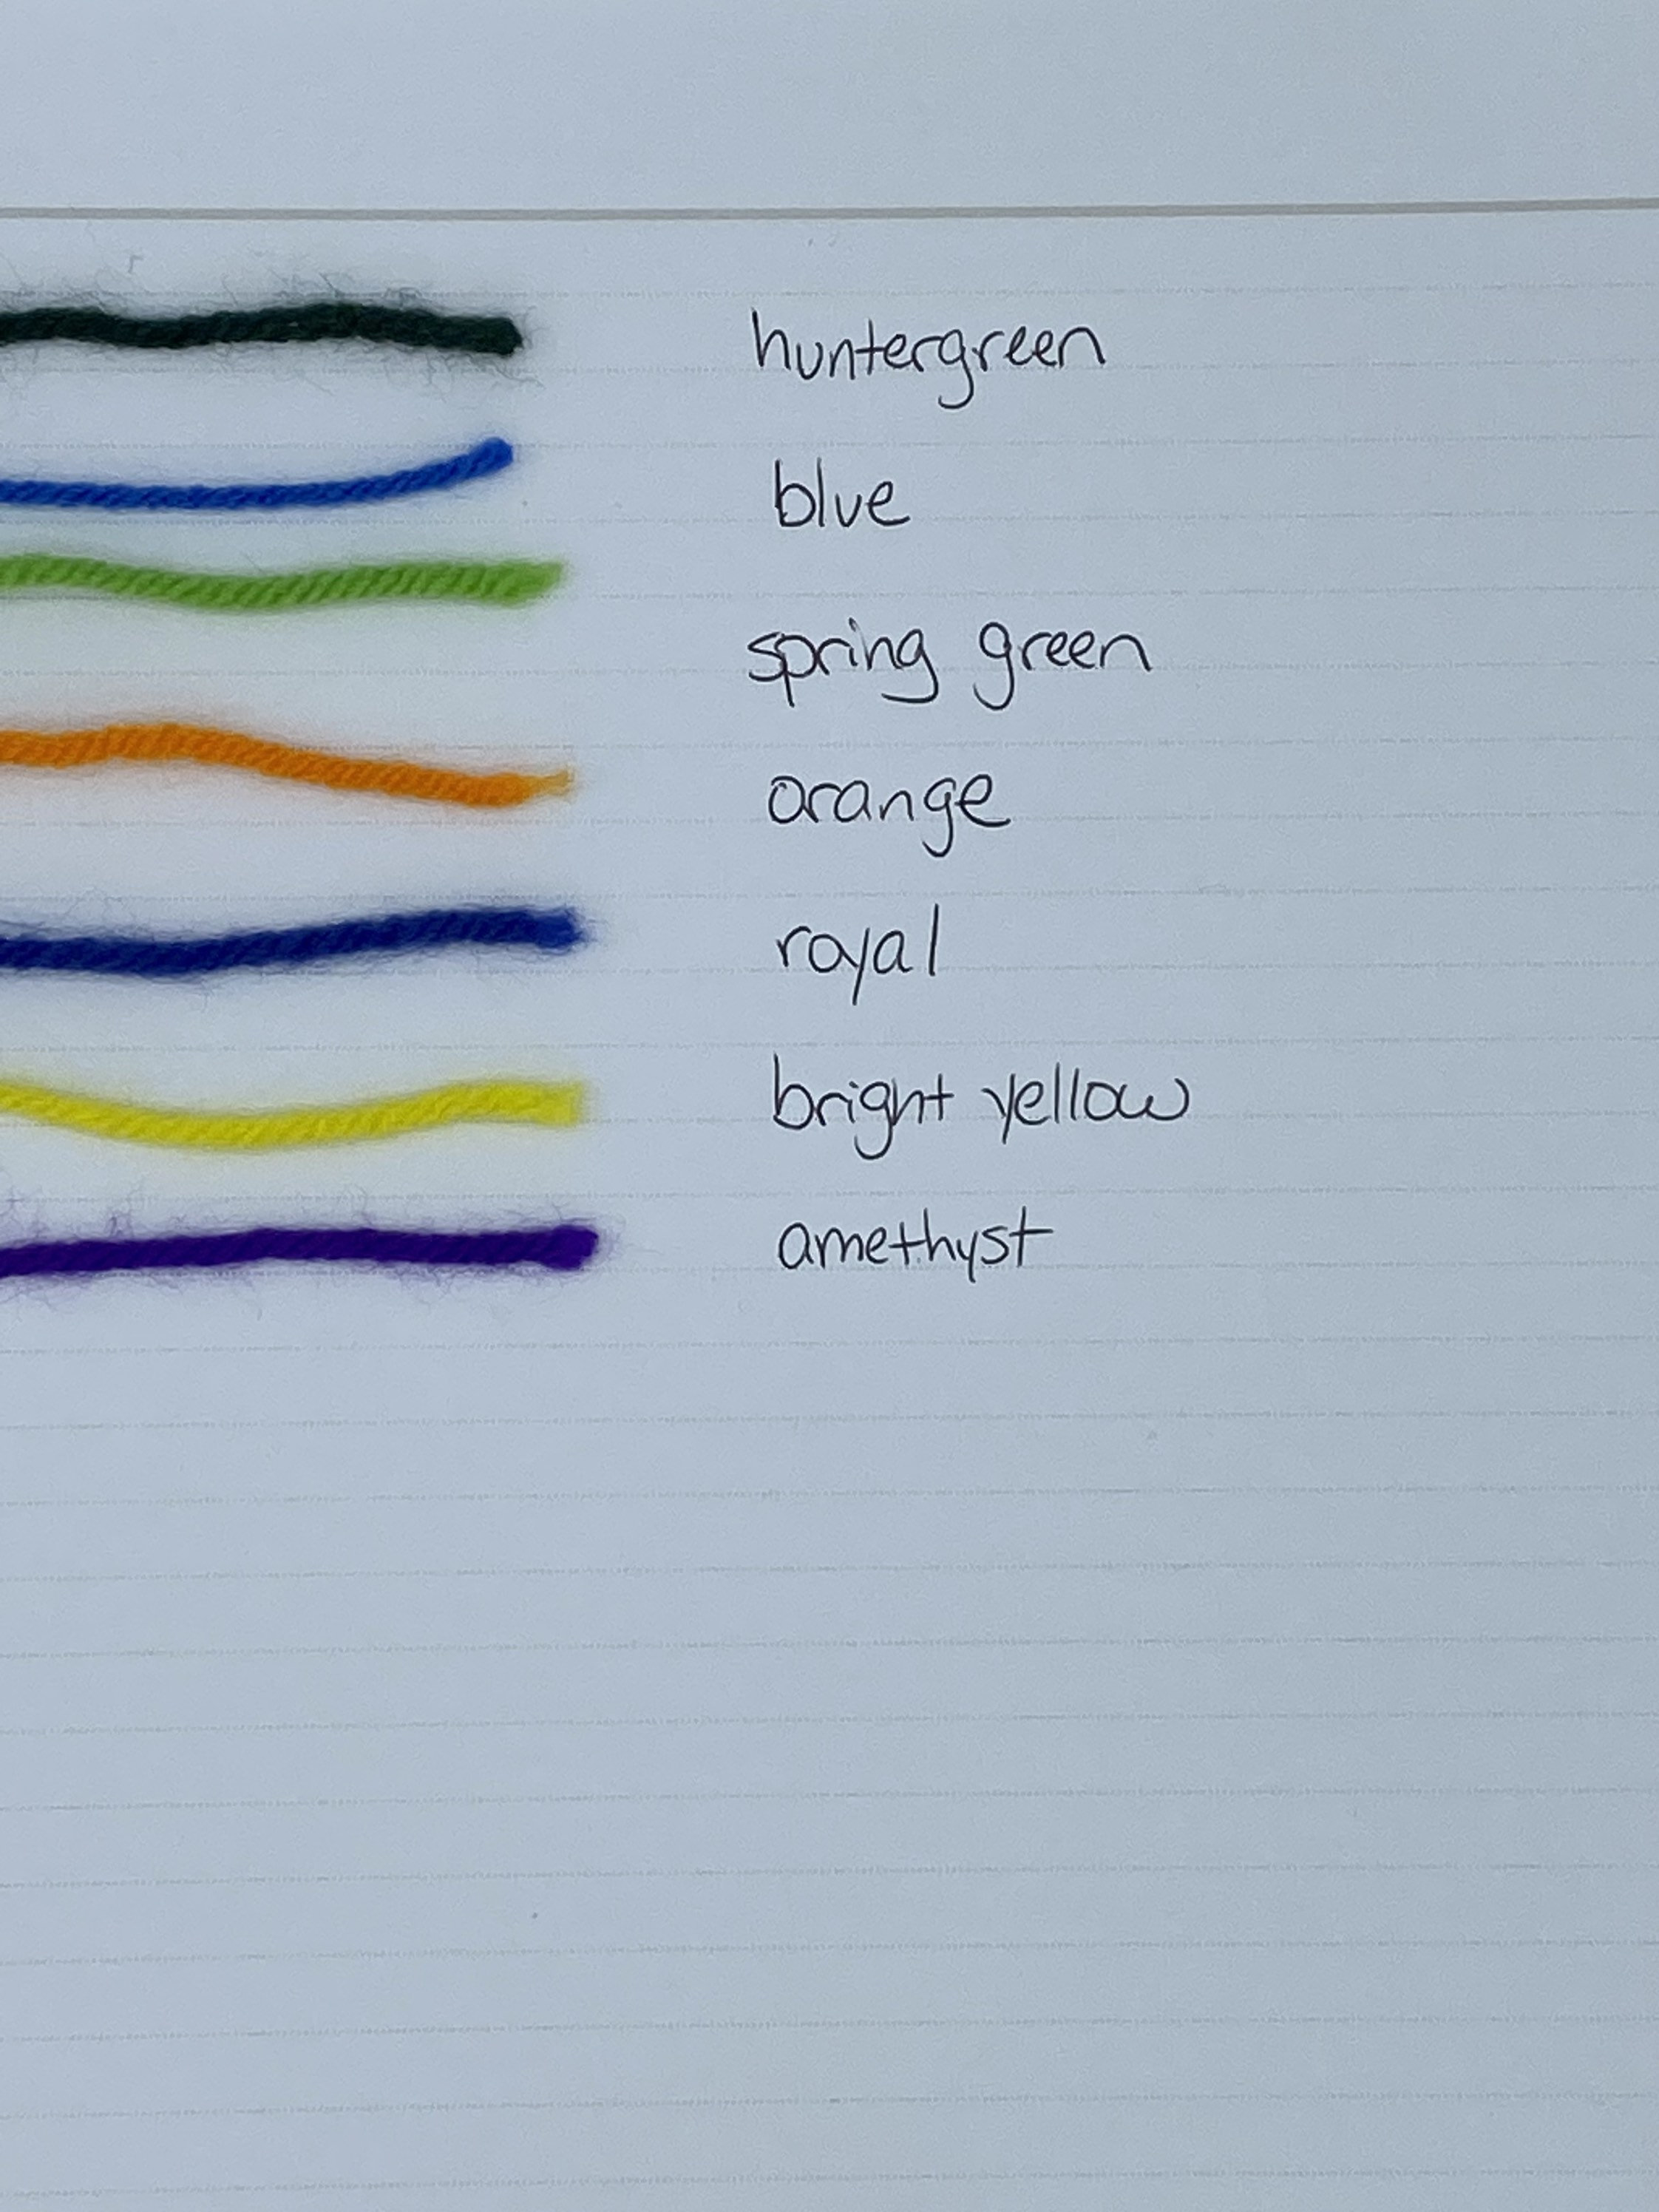 huntergreen
blue
spring green
orange
royal
bright yellow
amethyst